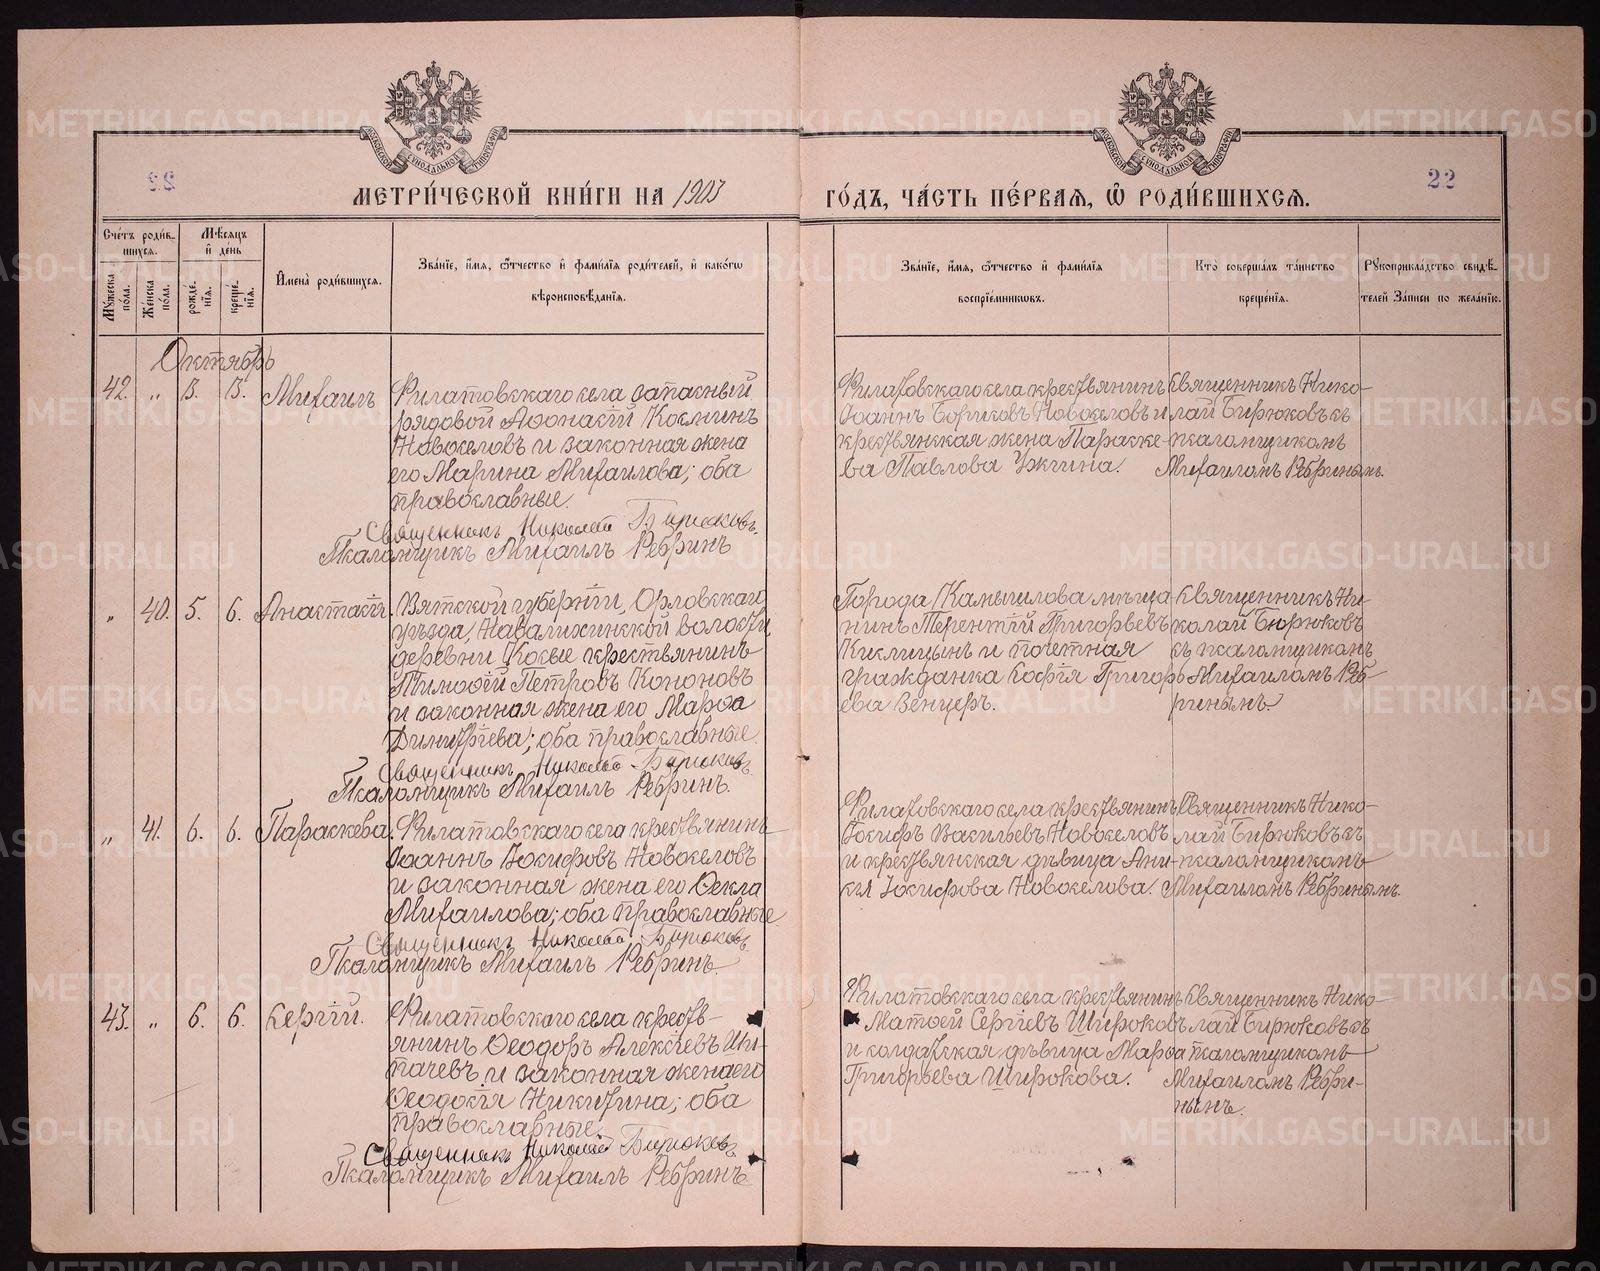 МОСКОВСКОЙ СѴНОДАЛЬНОЙ ТИПОГРАФІИ
МОСКОВСКОЙ СѴНОДАЛЬНОЙ ТИПОГРАФІИ
22
22
МЕТРИ́ЧЕСКОЙ КНИ́ГИ НА 1903
ГО́ДЪ, ЧА́СТЬ ПЕ́РВАЯ, Ѡ РОДИ́ВШИХСЯ.
Сче́тъ роди́вшихся.
Мѣсяцъ и де́нь
Мꙋжеска по́ла.
Же́нска по́ла.
рожде́нія.
креще́нія.
Имена̀ роди́вшихся.
Зва́ніе, и́мя, ѻ҆́тчество и фами́лія роди́телей, и како́гѡ
вѣроисповѣ́данія.
Зва́ніе, и́мя, ѻ҆́тчество и фами́лія
воспріе́мникѡвъ.
Кто̀ соверша́лъ та́инство
креще́нія.
Рꙋкоприкла́дство свидѣ́телей За́писи по жела́нію.
Октябрь
42. „ 3. 3. Михаилъ
Филатовскаго села запасный
рядовой Аѳонасій Косминъ
Новоселовъ и законная жена
его Марина Михаилова; оба
православные.
Священникъ Николай Бирюковъ.
Псаломщикъ Михаилъ Ребринъ
Филатовскаго села крестьянинъ
Іоаннъ Борисовъ Новоселовъ и
крестьянская жена Параске-
ва Павлова Ужгина.
Священникъ Нико-
лай Бирюковъ съ
псаломщикомъ
Михаиломъ Ребринымъ.
„ 40. 5. 6. Анастасія.
Вятской губерніи, Орловскаго
уѣзда, Навалихинской волости,
деревни Косые крестьянинъ
Тимоѳій Петровъ Кононовъ
и законная жена его Марѳа
Димитріева; оба православные.
Священникъ Николай Бирюковъ
Псаломщикъ Михаилъ Ребринъ.
Города Камышлова мѣща-
нинъ Терентій Григорьевъ
Кислицынъ и почетная
гражданка Софія Григорь-
ева Венцеръ.
Священникъ Ни-
колай Бюрюковъ
съ псаломщикомъ
Михаиломъ Реб-
ринымъ
„ 41. 6. 6. Параскева.
Филатовскаго села крестьянинъ
Іоаннъ Іосифовъ Новоселовъ
и законная жена его Ѳекла
Михаилова; оба православные
Священникъ Николай Бирюковъ
Псаломщикъ Михаилъ Ребринъ.
Филатовскаго села крестьянинъ
Іосифъ Васильевъ Новоселовъ
и крестьянская дѣвица Ани-
сія Іосифова Новоселова.
Священникъ Нико-
лай Бирюковъ съ
псаломщикомъ
Михаиломъ Ребринымъ.
43. „ 6. 6. Сергій.
Филатовскаго села кресть-
янинъ Ѳеодоръ Алексіевъ Ши-
пачевъ и законная жена его
Ѳеодосія Никитина; оба
православные.
Священникъ Николай Бирюковъ
Псаломщикъ Михаилъ Ребринъ
Филатовскаго села крестьянинъ
Матѳей Сергіевъ Широковъ
и солдатская дѣвица Марѳа
Григорьева Широкова.
Священникъ Нико-
лай Бирюковъ съ
псаломщикомъ
Михаиломъ Ребри-
нымъ.
METRIKI.GASO-URAL.RU